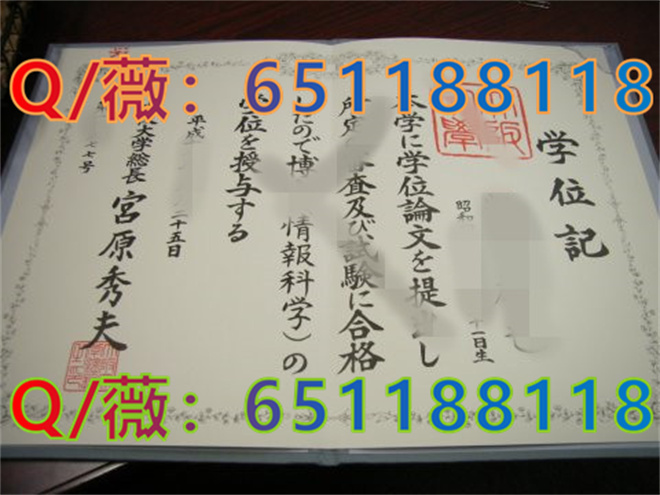 Q/薇：651188118
学位記
昭和
十一日生
本学に学位論文を提出し
審査及び試験に合格
したので博 情報科学）の
学位を授与する
平成
二十五日
大学総長 宮原秀夫
七七号
Q/薇：651188118